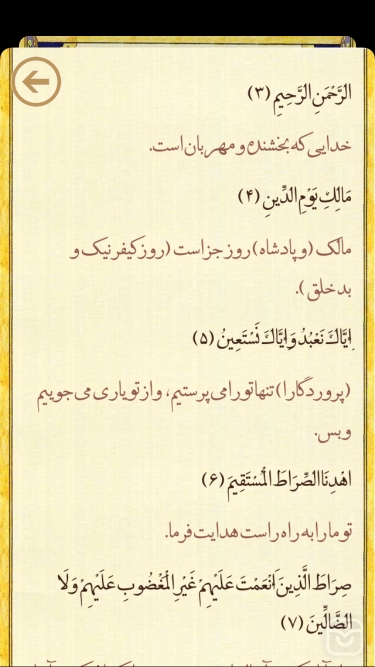 الرَّحْمَنِ الرَّحِيمِ (۳)
خدایی که بخشنده و مهربان است.
مَالِكِ يَوْمِ الدِّينِ (۴)
مالک (و پادشاه) روز جزاست (روز کیفر نیک و
بد خلق).
إِيَّاكَ نَعْبُدُ وَإِيَّاكَ نَسْتَعِينُ (۵)
(پروردگارا) تنها تو را می پرستیم، و از تو یاری می جوییم
و بس.
اهْدِنَا الصِّرَاطَ الْمُسْتَقِيمَ (۶)
تو ما را به راه راست هدایت فرما.
صِرَاطَ الَّذِينَ أَنْعَمْتَ عَلَيْهِمْ غَيْرِ الْمَغْضُوبِ عَلَيْهِمْ وَلَا
الضَّالِّينَ (۷)